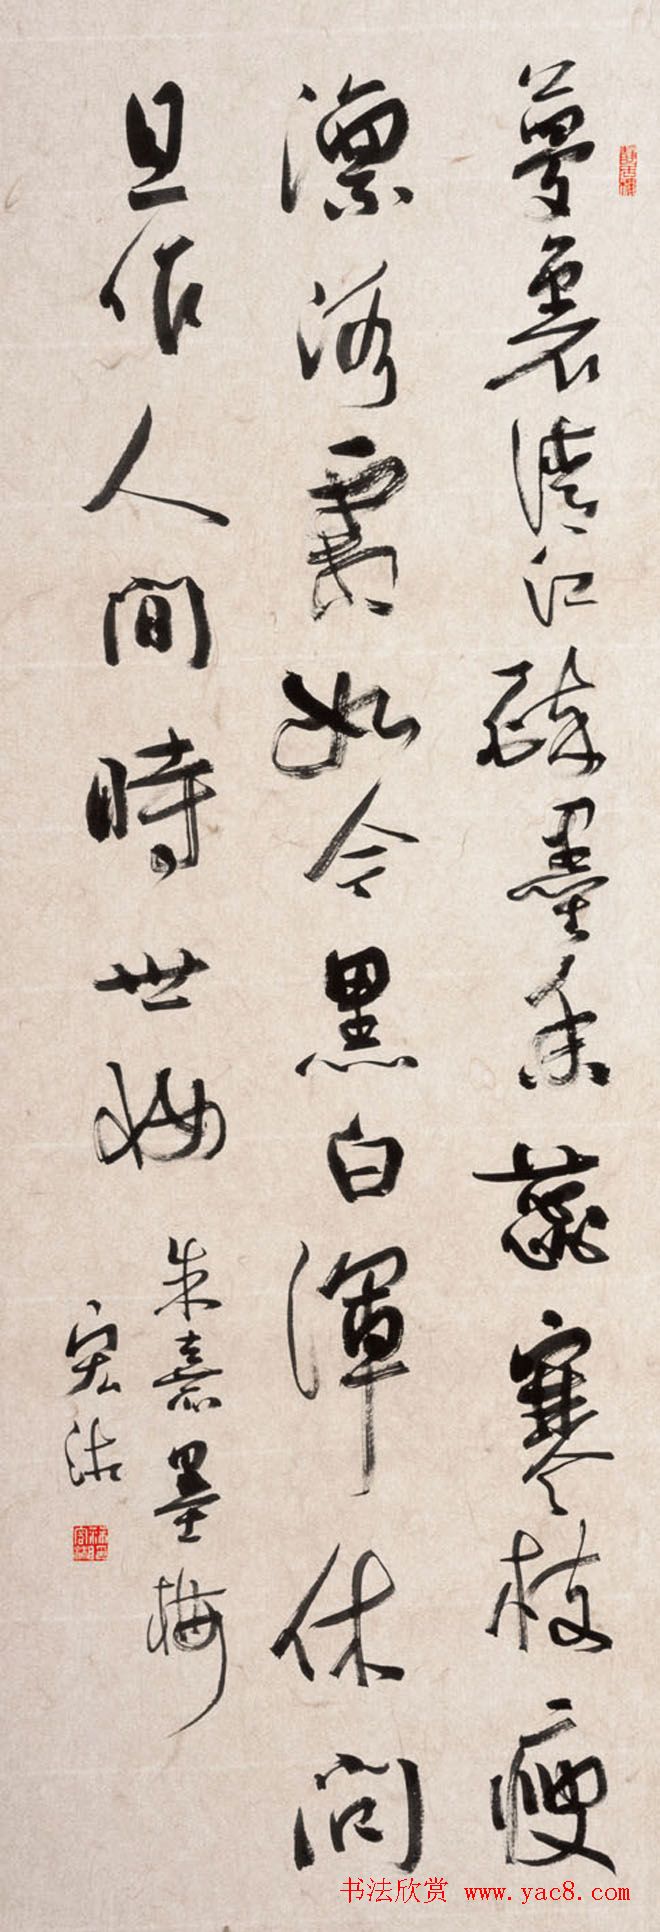 夢裏清江醉墨香蕊寒枝瘦
凜霜如今黑白渾休問
且作人間時世妝
朱熹墨梅
宏
书法欣赏 www.yac8.com